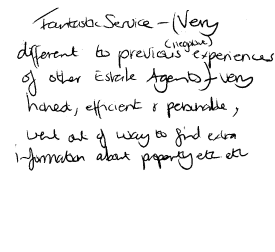 Fantastic Service - (Very
different to previous (negative) experiences
of other Estate Agents) - very
honest, efficient & personable,
went out of way to find extra
information about property etc etc